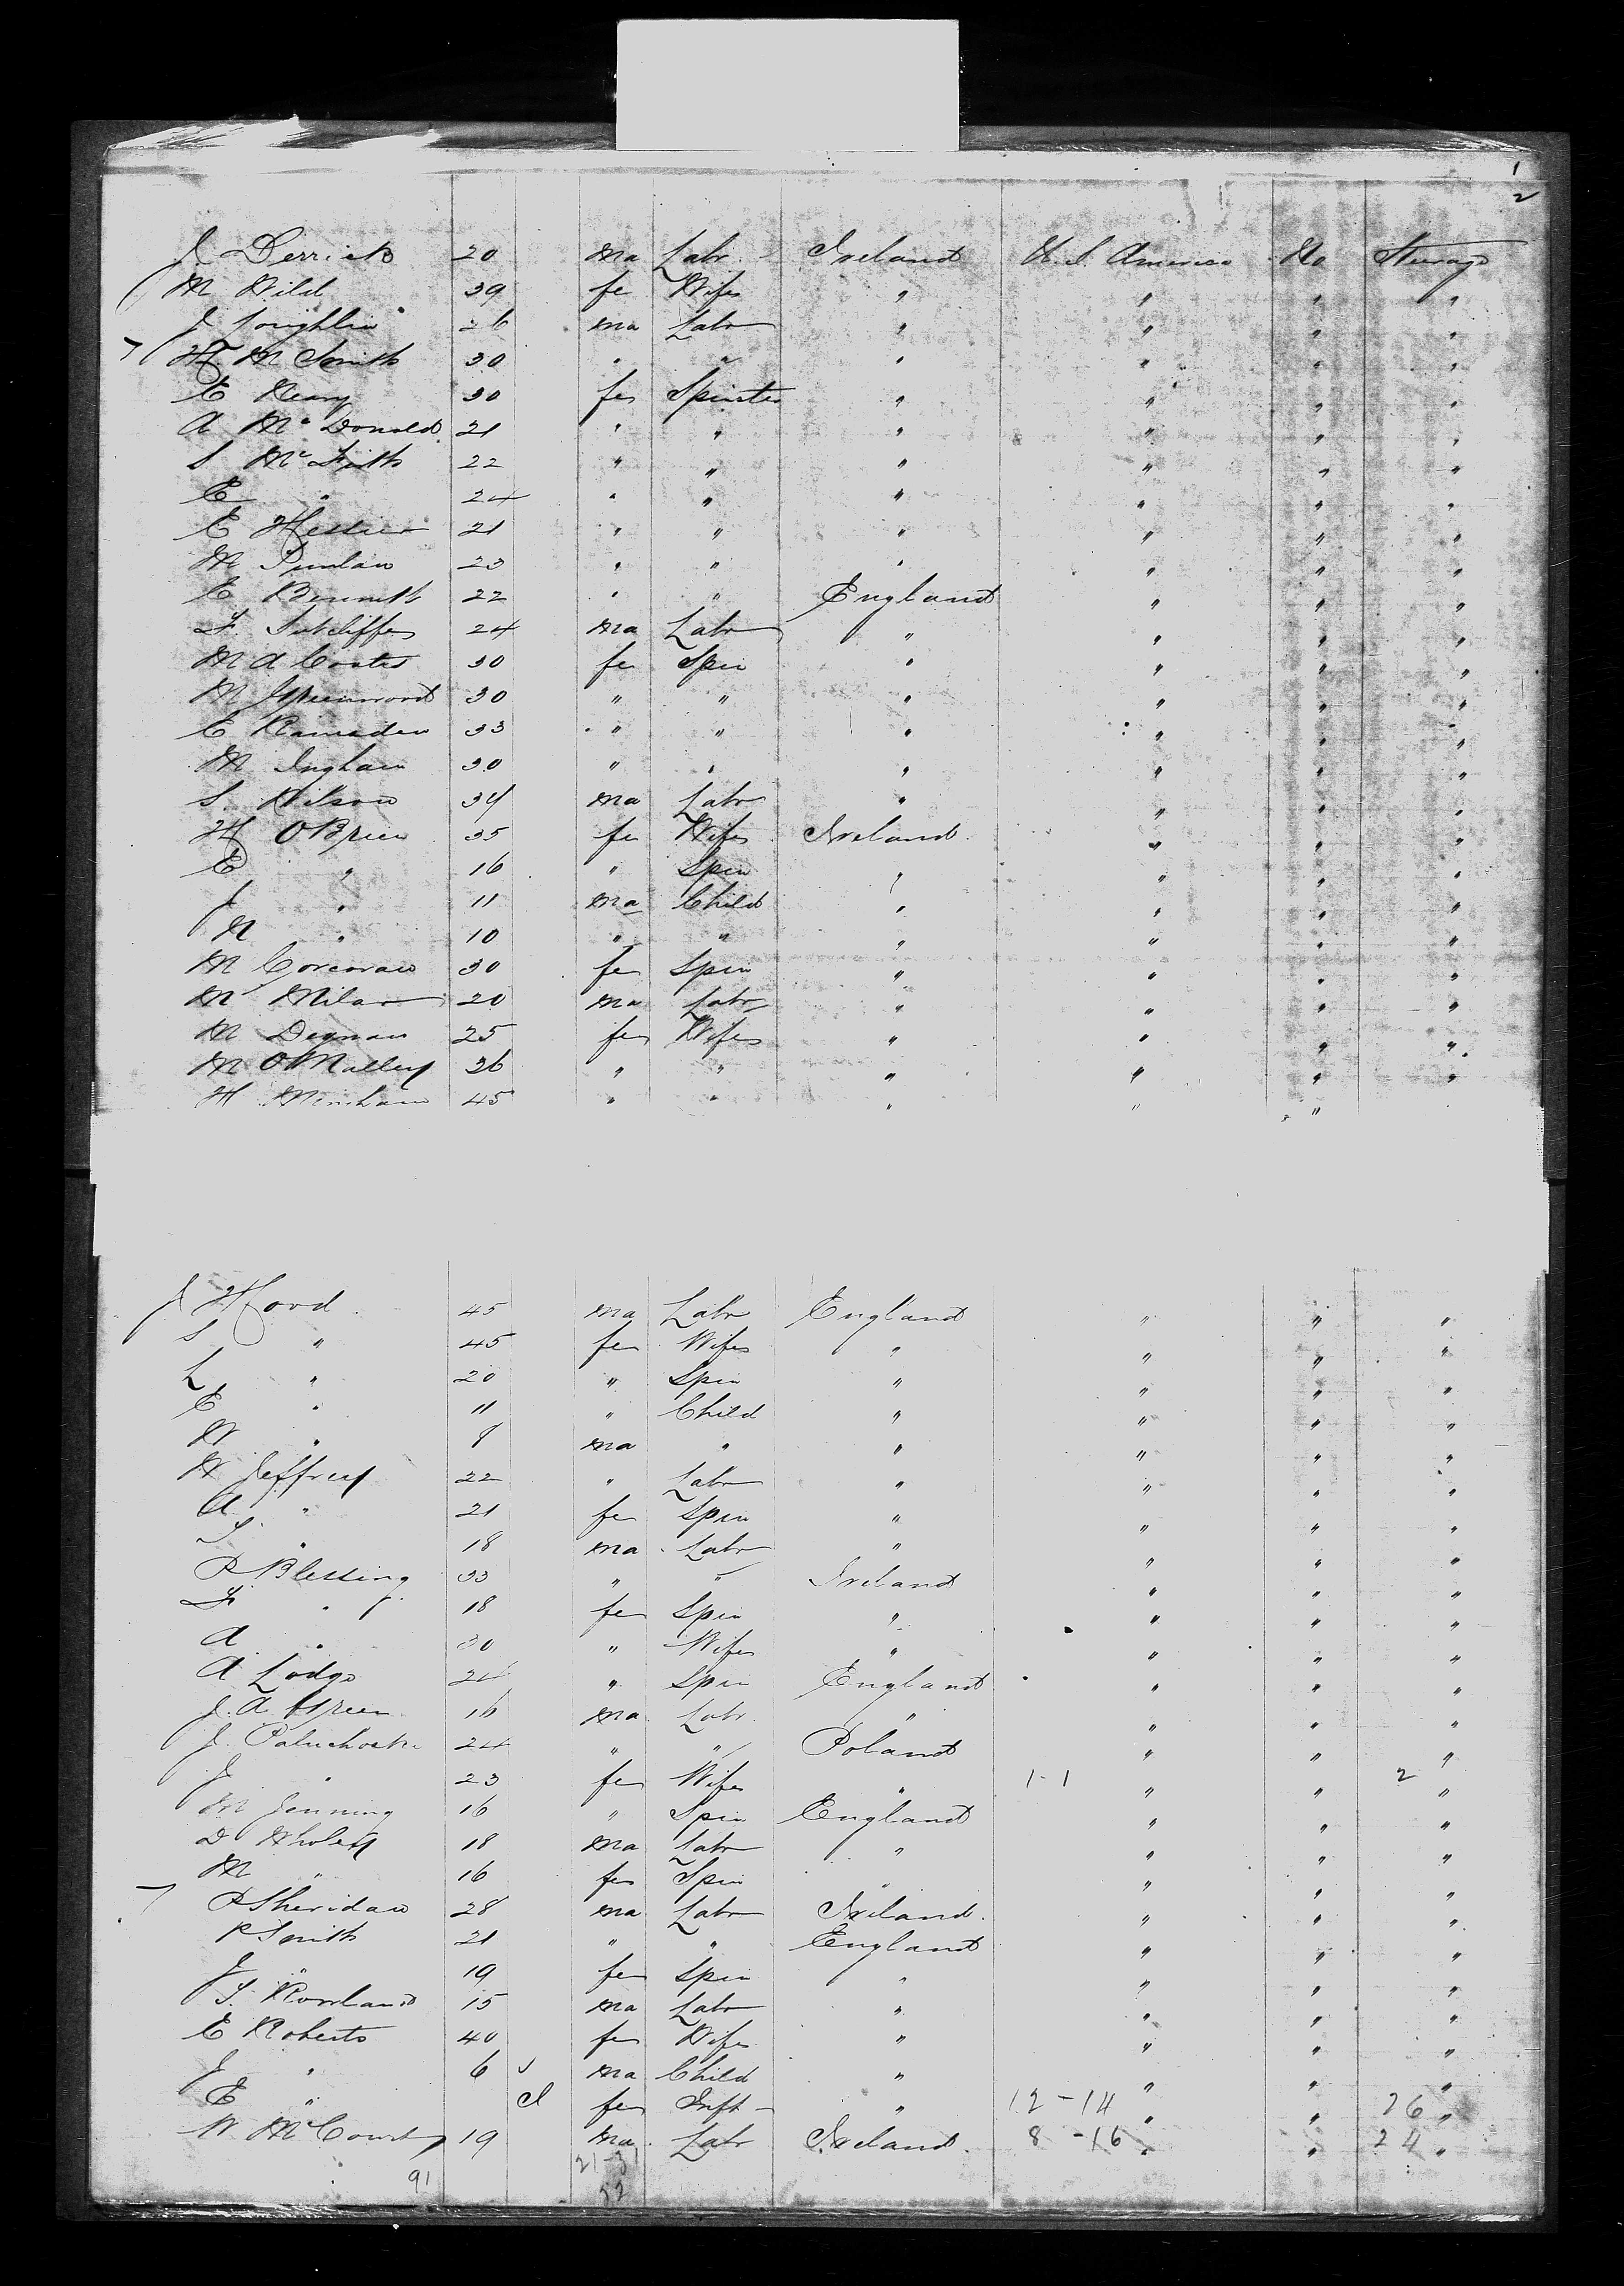 1
2
J Derrick 20 ma Labr Ireland U.S. America No Steerage
M Wild 39 fe Wife " " " "
J Coughlin 26 ma Labr " " " "
7 H M Smith 30 " " " " " "
E Neary 30 fe Spinster " " " "
A McDonald 21 " " " " " "
S 22 " " " " " "
E " 24 " " " " " "
E 21 " " " " " "
M 23 " " " " " "
E Bennett 22 " " England " " "
F. Sutcliffe 24 ma Labr " " " "
M A Coates 30 fe Spin " " " "
M Greenwood 30 " " " " " "
E Ramsden 33 " " " " " "
M Ingham 30 " " " " " "
S. Wilson 34 ma Labr " " " "
H OBrien 35 fe Wife Ireland " " "
E " 16 " Spin " " " "
J " 11 ma Child " " " "
M " 10 " " " " " "
M Corcoran 30 fe Spin " " " "
M Milan 20 ma Labr " " " "
M Degnan 25 fe Wife " " " "
M OMalley 36 " " " " " "
H 45 " " " " "
J Hood 45 ma Labr England " " "
S " 45 fe Wife " " " "
L " 20 " Spin " " " "
E " 11 " Child " " " "
W " 8 ma " " " " "
W Jeffrey 22 " Labr " " " "
A " 21 fe Spin " " " "
S " 18 ma Labr " " " "
P Blessing 33 " " Ireland " " "
F " 18 fe Spin " " " "
A " 30 " Wife " " " "
A Lodge 24 " Spin England " " "
J. A Green 16 ma Labr " " " "
J. 24 " " Poland " " "
J " 23 fe Wife " 1-1 " " 2 "
M Jenning 16 " Spin England " " "
D Wholey 18 ma Labr " " " "
M " 16 fe Spin " " " "
7 P Sheridan 28 ma Labr Ireland " " "
P Smith 21 " " England " " "
J " 19 fe Spin " " " "
S. Rowland 15 ma Labr " " " "
E Roberts 40 fe Wife " " " "
J " 6 ma Child " " " "
E " fe Inft " 12-14 " " 26 "
W McCourt 19 ma Labr Ireland 8-16 " " 24 "
91 21-31
52